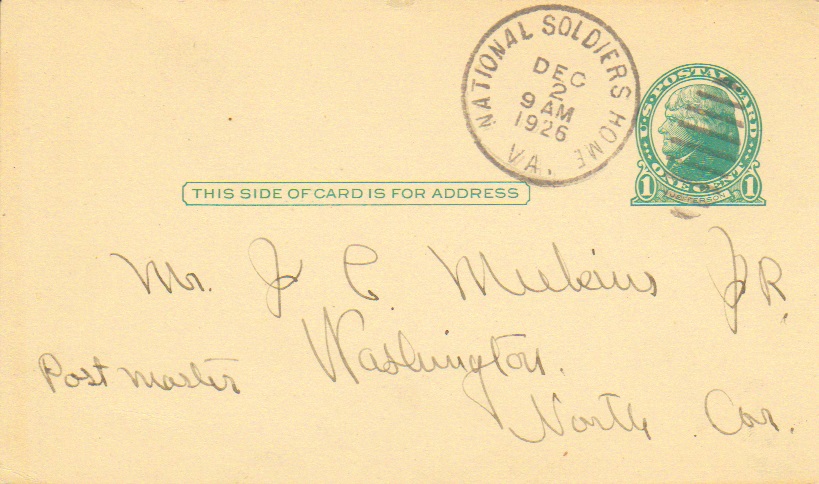 NATIONAL SOLDIERS HOME
DEC
2
9 AM
1926
VA.
U.S. POSTAL CARD
ONE CENT
1 JEFFERSON 1
THIS SIDE OF CARD IS FOR ADDRESS
Mr. J C. Meekins JR.
Post master
Washington.
North Car.